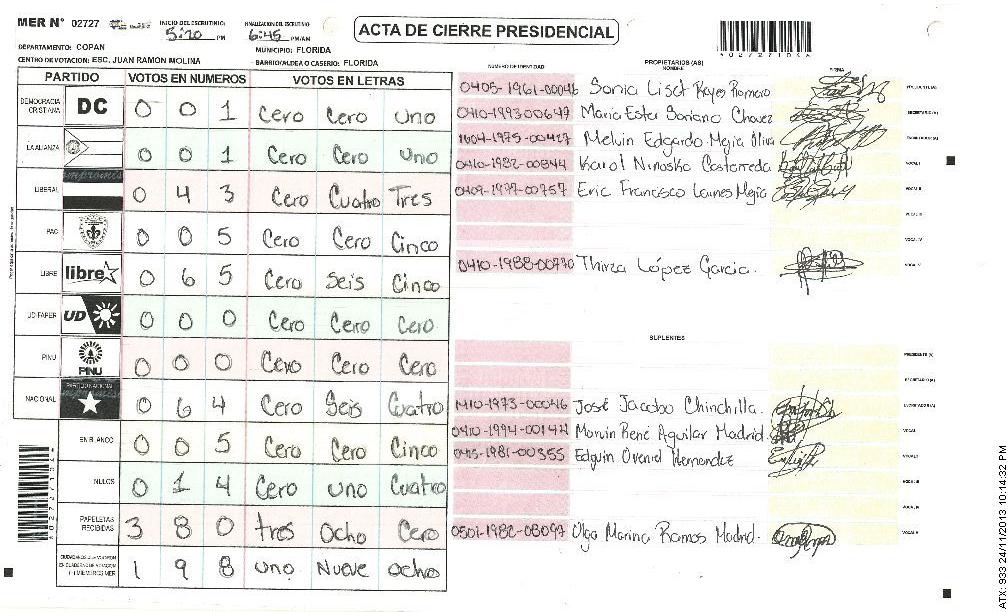 MER N° 02727
INICIO DEL ESCRUTINIO: 5:20 PM
FINALIZACION DEL ESCRUTINIO: 6:45 PM/AM
ACTA DE CIERRE PRESIDENCIAL
DEPARTAMENTO: COPAN
MUNICIPIO: FLORIDA
CENTRO DE VOTACION: ESC. JUAN RAMON MOLINA
BARRIO/ALDEA O CASERIO: FLORIDA
PARTIDO VOTOS EN NUMEROS VOTOS EN LETRAS
DEMOCRACIA CRISTIANA DC 0 0 1 Cero Cero uno
LA ALIANZA 0 0 1 Cero Cero uno
LIBERAL 0 4 3 Cero Cuatro Tres
PAC 0 0 5 Cero Cero Cinco
LIBRE libre 0 6 5 Cero Seis Cinco
UD FAPER UD 0 0 0 Cero Cero Cero
PINU PINU 0 0 0 Cero Cero Cero
NACIONAL PARTIDO NACIONAL 0 6 4 Cero Seis Cuatro
EN BLANCO 0 0 5 Cero Cero Cinco
NULOS 0 1 4 Cero uno Cuatro
PAPELETAS RECIBIDAS 3 8 0 tres Ocho Cero
CIUDADANOS QUE VOTARON EN CUADERNO DE VOTACION (+) MIEMBROS MER 1 9 8 uno Nueve Ocho
NUMERO DE IDENTIDAD
PROPIETARIOS (AS)
NOMBRE
FIRMA
0405-1961-00046 Sonia Liset Reyes Romero
0410-1993-00647 Maria Ester Soriano Chavez SECRETARIO (A)
1604-1975-00427 Melvin Edgardo Mejia Oliva
0410-1982-00844 Karol Ninoska Castañeda VOCAL I
0409-1977-00757 Eric Francisco Laines Mejia VOCAL II
VOCAL III
VOCAL IV
0410-1988-00770 Thirza López Garcia. VOCAL V
SUPLENTES
PRESIDENTE (A)
SECRETARIO (A)
1410-1973-00046 José Jacobo Chinchilla. ESCRUTADOR (A)
0410-1994-00144 Marvin René Aguilar Madrid. VOCAL I
0415-1981-00355 Edguin Oveniel Hernandez VOCAL II
VOCAL III
VOCAL IV
0501-1982-08097 Olga Marina Ramos Madrid. VOCAL V
ATX: 933 24/11/2013 10:14:32 PM